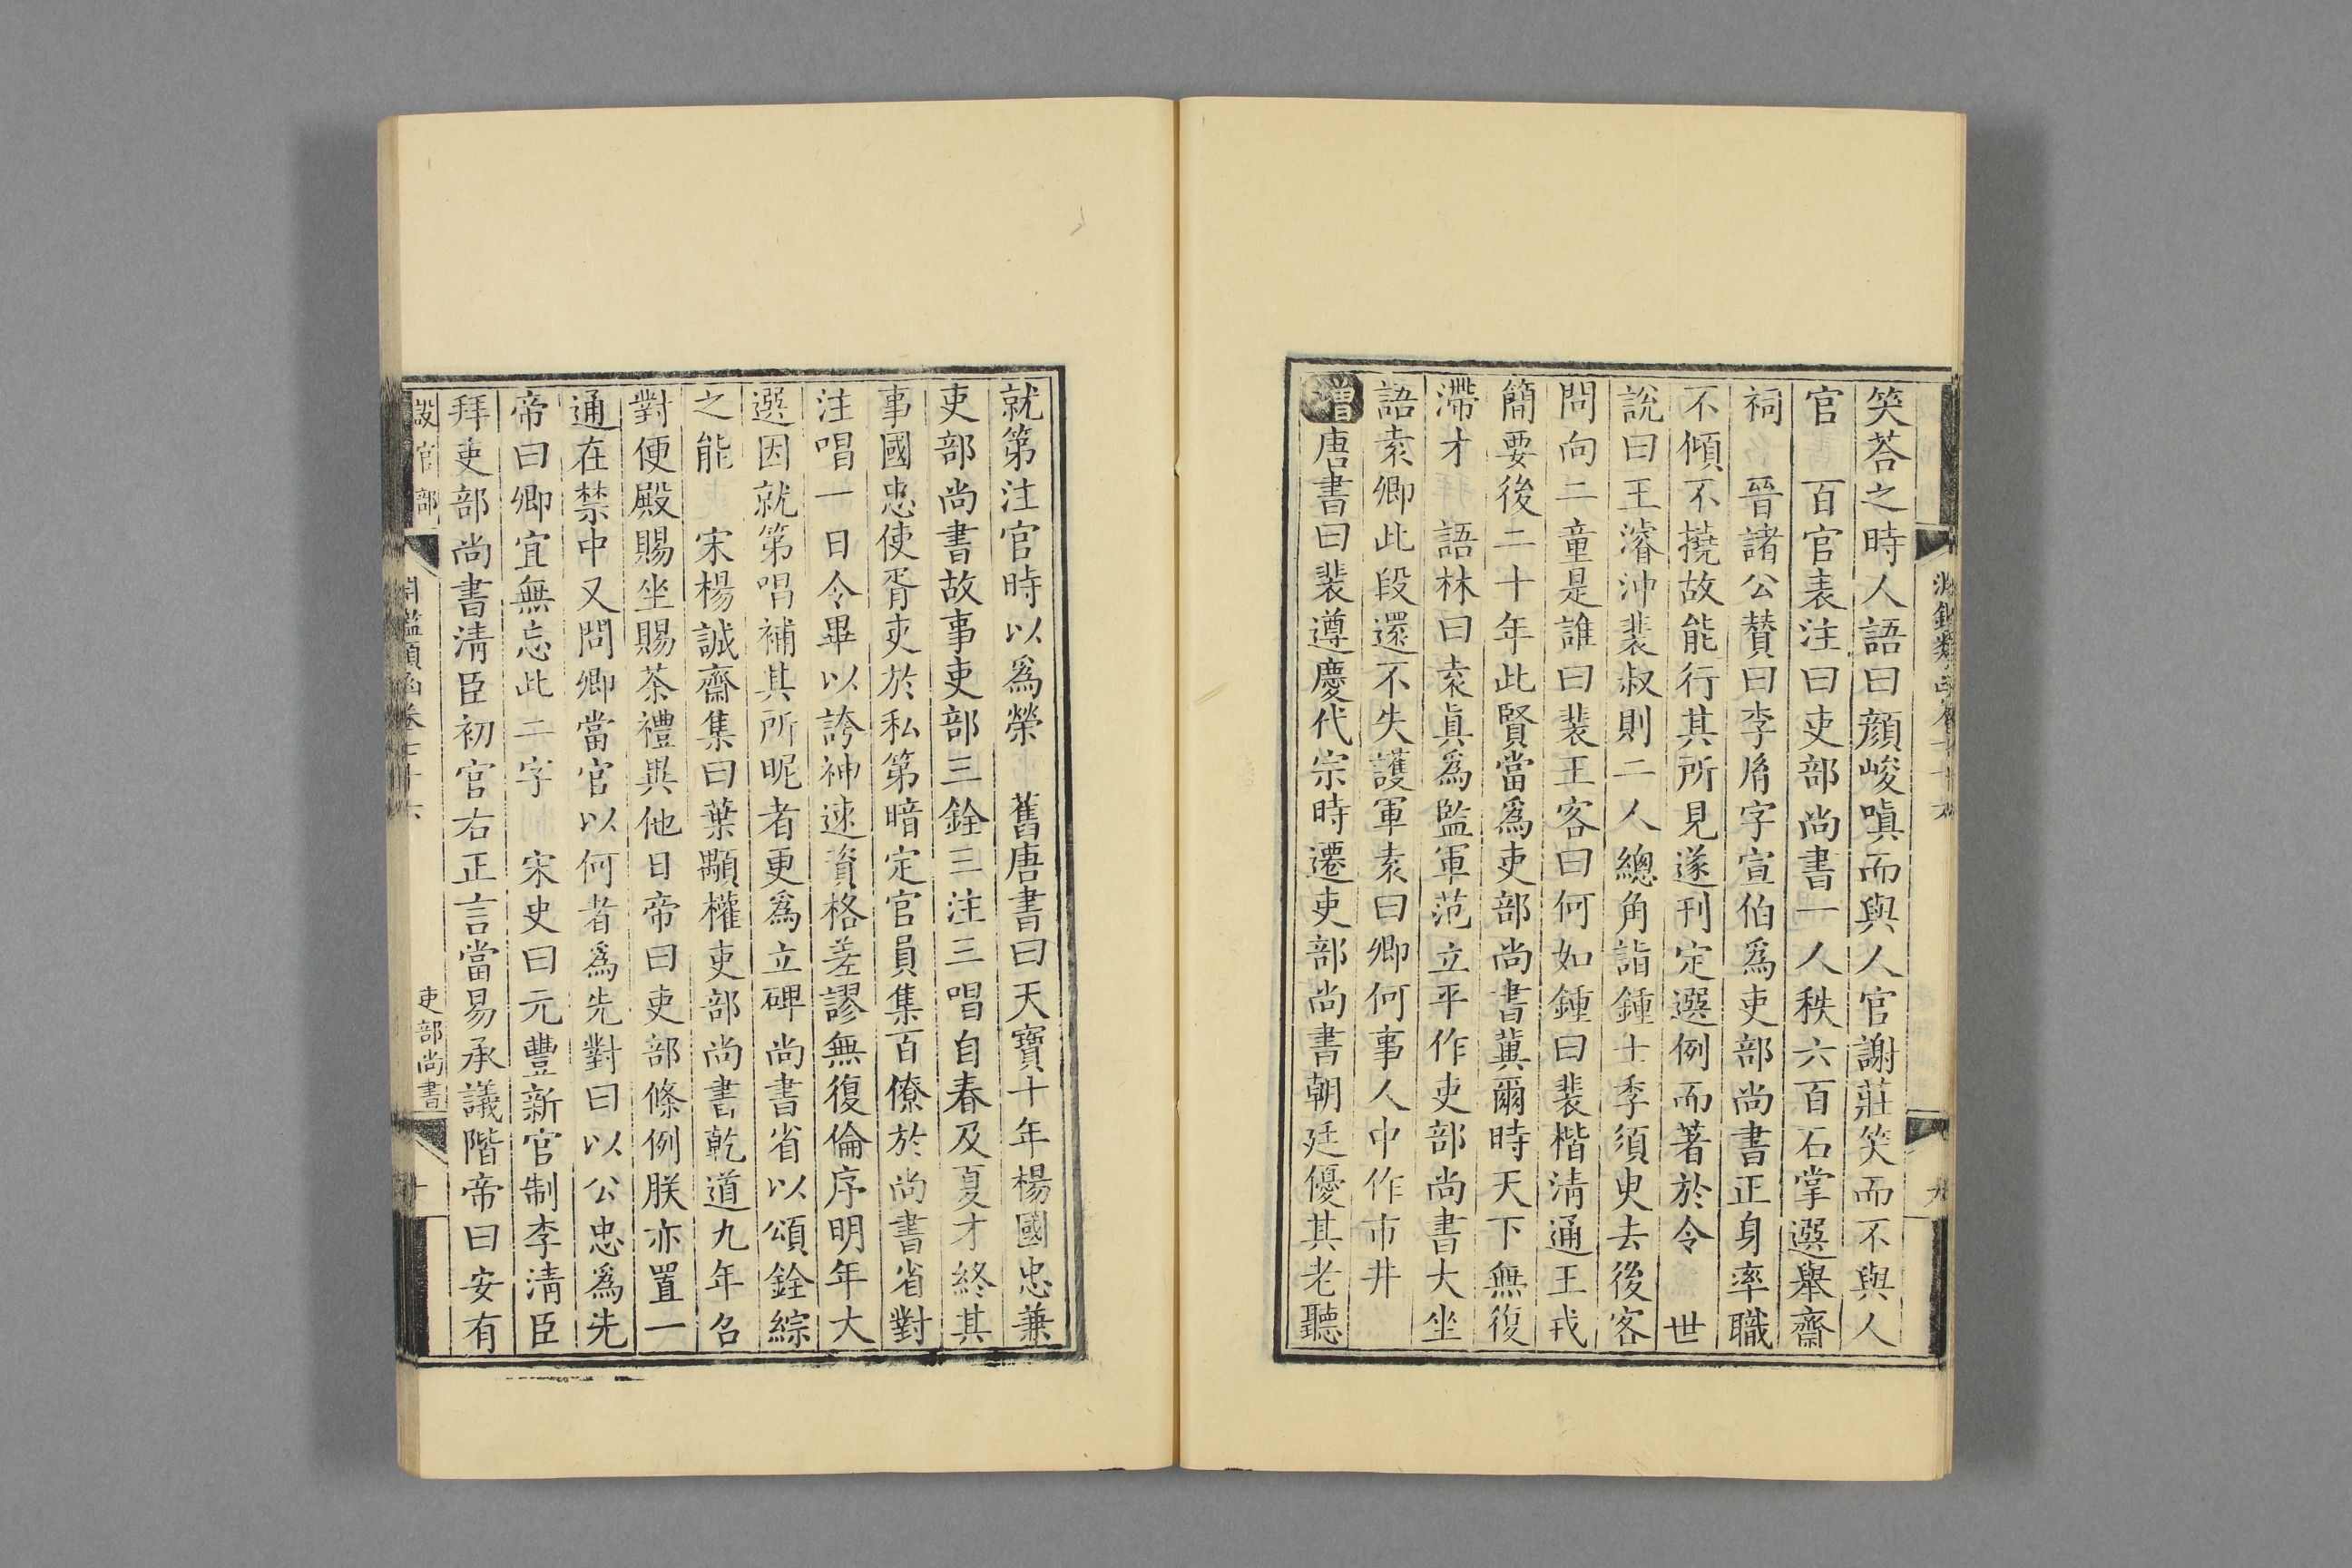 笑荅之時人語曰顔峻嗔而與人官謝莊笑而不與人
官　百官表注曰吏部尚書一人秩六百石掌選舉齋
祠　晉諸公賛曰李胤字宣伯爲吏部尚書正身率職
不傾不撓故能行其所見遂刊定選例而著於令　世
說曰王濬沖裴叔則二人總角詣鍾士季須臾去後客
問向二童是誰曰裴王客曰何如鍾曰裴楷清通王戎
簡要後二十年此賢當爲吏部尚書冀爾時天下無復
滯才　語林曰袁眞爲監軍范立平作吏部尚書大坐
語袁卿此段還不失護軍袁曰卿何事人中作市井
增唐書曰裴遵慶代宗時遷吏部尚書朝廷優其老聽
就第注官時以爲榮　舊唐書曰天寶十年楊國忠兼
吏部尚書故事吏部三銓三注三唱自春及夏才終其
事國忠使胥吏於私第暗定官員集百僚於尚書省對
注唱一日令畢以誇神速資格差謬無復倫序明年大
選因就第唱補其所昵者更爲立碑尚書省以頌銓綜
之能　宋楊誠齋集曰葉顒權吏部尚書乾道九年召
對便殿賜坐賜茶禮異他日帝曰吏部條例朕亦置一
通在禁中又問卿當官以何者爲先對曰以公忠爲先
帝曰卿宜無忘此二字　宋史曰元豐新官制李清臣
拜吏部尚書清臣初官右正言當易承議階帝曰安有
設官部
吏部尚書